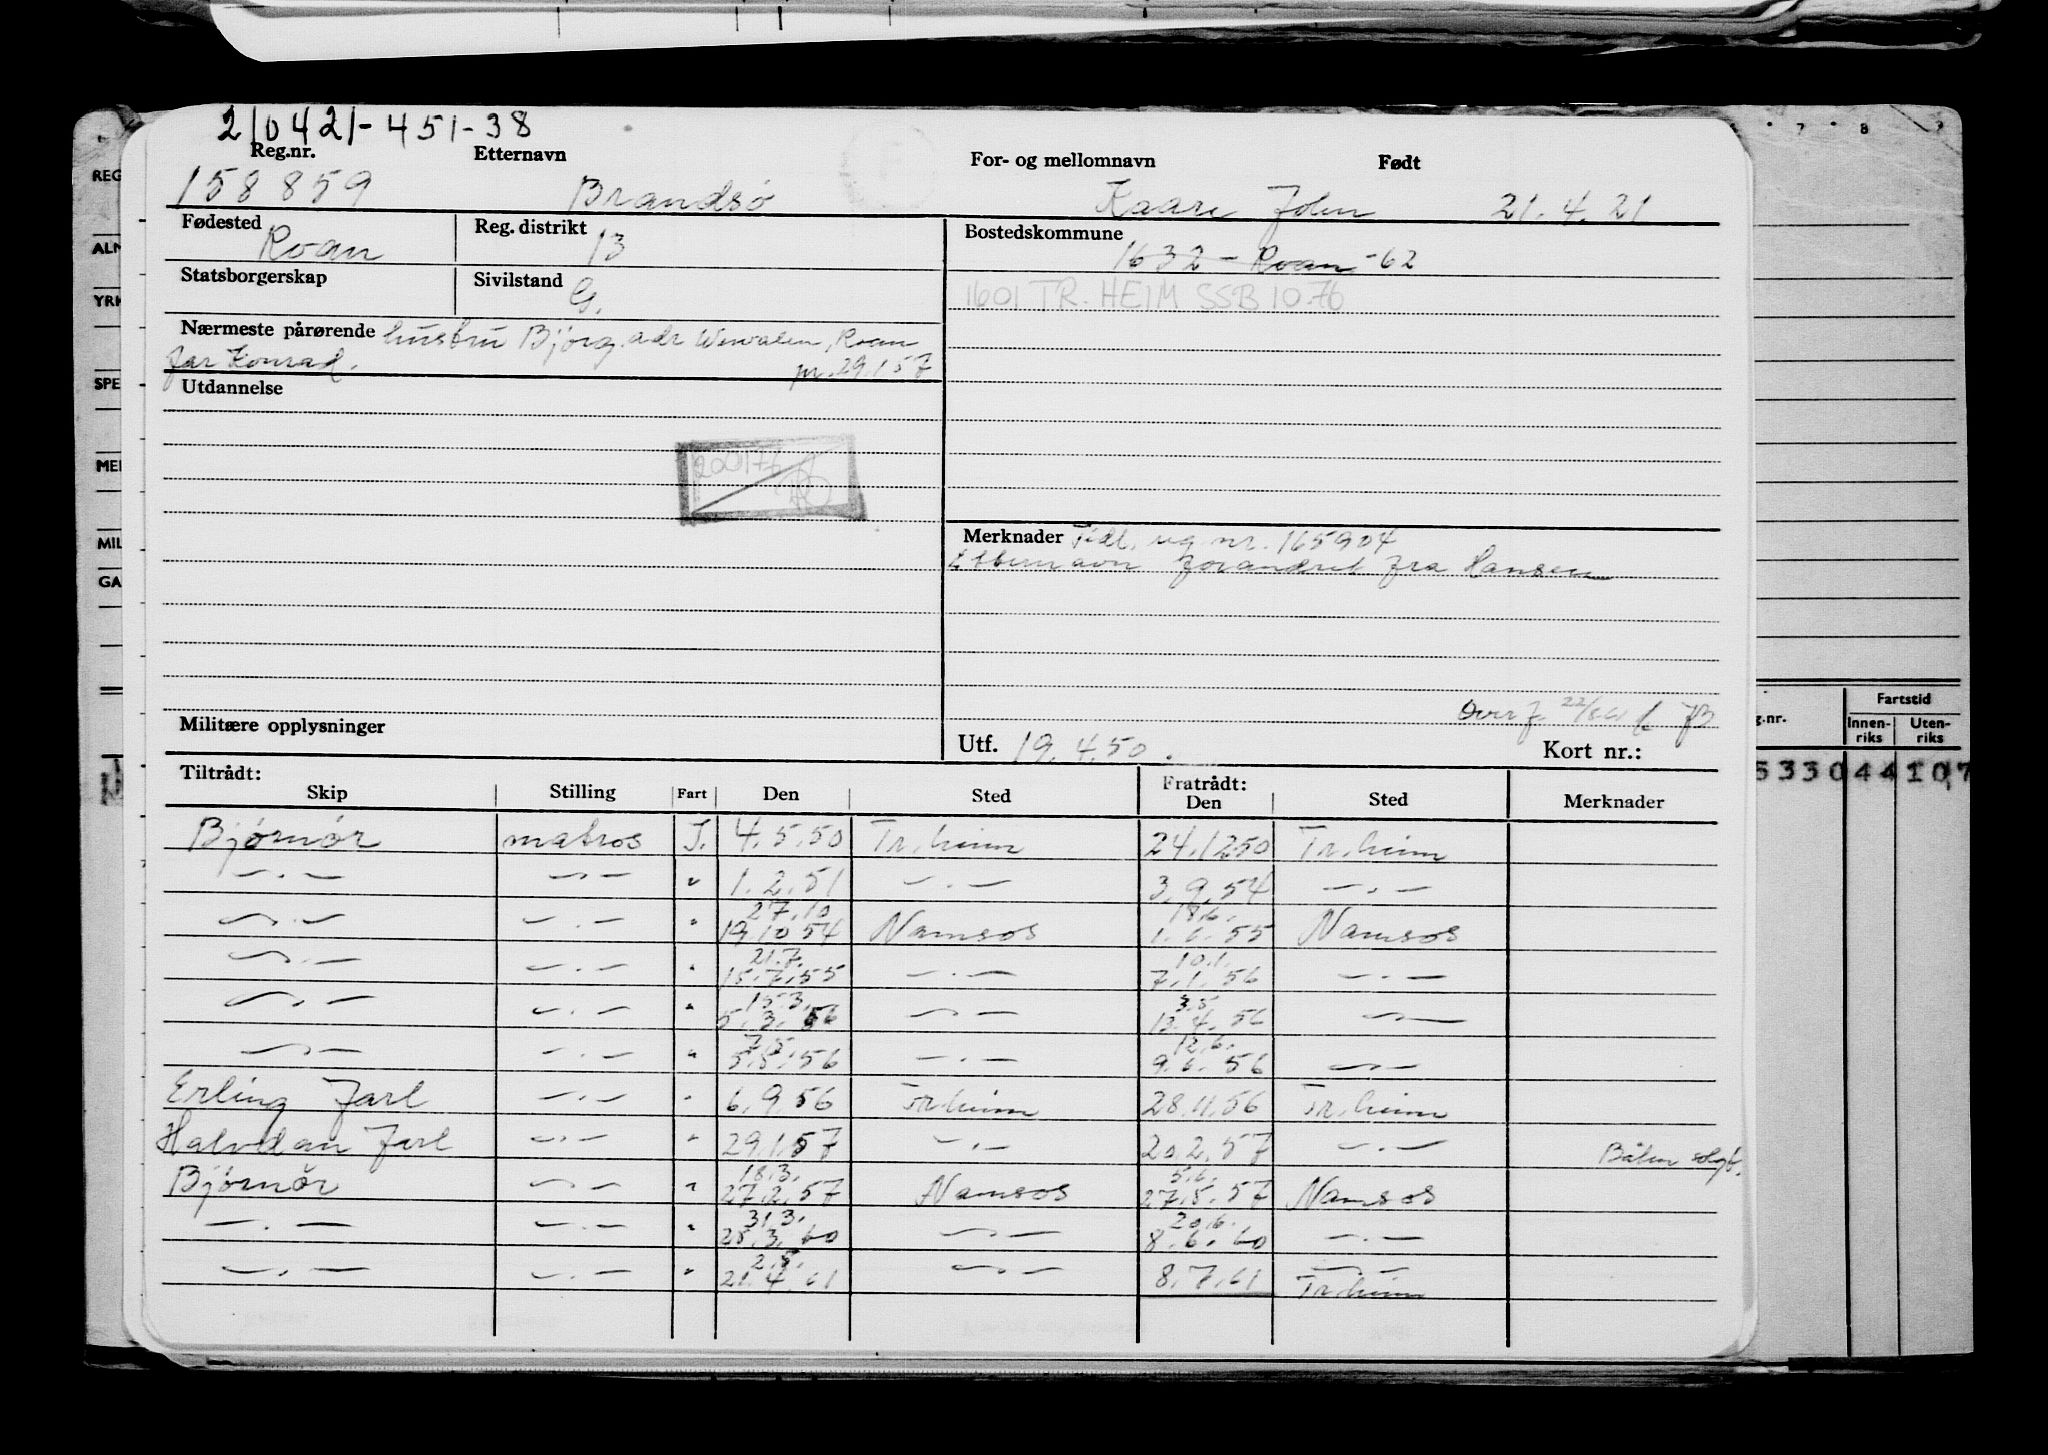 210421-451-38
Reg.nr. Etternavn For- og mellomnavn Født
158859 Brandsø Kaare John 21.4.21
Fødested Roan Reg. distrikt 13 Bostedskommune 1632 - Roan -62
Statsborgerskap Sivilstand G. 1601 TR.HEIM SSB 10.76
Nærmeste pårørende hustru Bjørg. adr Roan
far Konrad. pr. 29.1.57
Utdannelse
200177
Merknader Tidl. reg nr. 165904
Etternavn forandret fra Hansen
Overf.
Militære opplysninger Utf. 19.4.50. Kort nr.:
Tiltrådt: Fratrådt:
Skip Stilling Fart Den Sted Den Sted Merknader
Bjørnør matros I. 4.5.50 Tr.heim 24.12.50 Tr.heim
— . — — . — " 1.2.51 — . — 3.9.54 — . —
27.10 18.6.
— . — — . — " 19.10.54 Namsos 1.6.55 Namsos
21.7. 10.1.
— . — — . — " 15.7.55 — . — 7.1.56 — . —
15.3. 3.5
— . — — . — " 5.3.56 — . — 13.4.56 — . —
7.5. 12.6.
— . — — . — " 5.5.56 — . — 9.6.56 — . —
Erling Jarl — . — " 6.9.56 Tr.heim 28.11.56 Tr.heim
Halvdan Jarl — . — " 29.1.57 — . — 20.2.57 — . — Båten solgt.
18.3. 5.6.
Bjørnør — . — " 27.2.57 Namsos 27.5.57 Namsos
31.3. 20.6.
— . — — . — " 28.3.60 — . — 8.6.60 — . —
2.5.
— . — — . — " 21.4.61 — . — 8.7.61 — . —
Tr.heim
REG
ALM
YRK
SPE
MEI
MIL
GA
7 8
g.nr. Fartstid
Innen-riks Uten-riks
5330 44 107